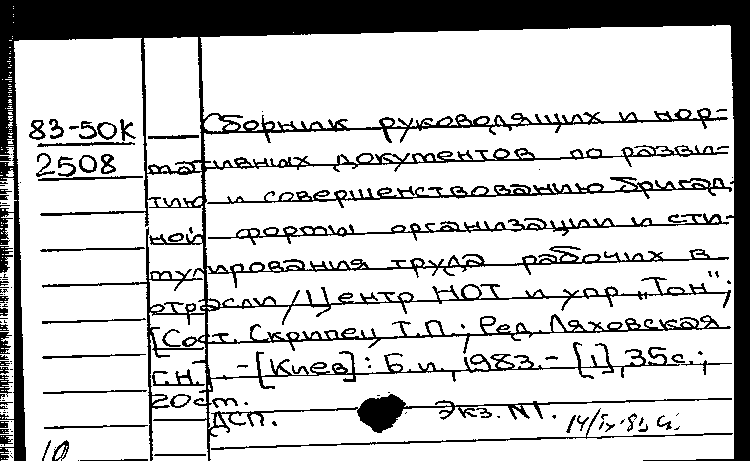 83-50К
2508
Сборник руководящих и нор=
мативных документов по разви=
тию и совершенствованию бригад-
ной формы организации и сти-
мулирования труда рабочих в
отрасли/Центр НОТ и упр „Тон";
[Сост. Скрипец Т.П.; Ред. Ляховская
Г.Н.]. - [Киев]: Б.и., 1983. - [1], 35с.;
20см.
ДСП. Экз. N1.
10